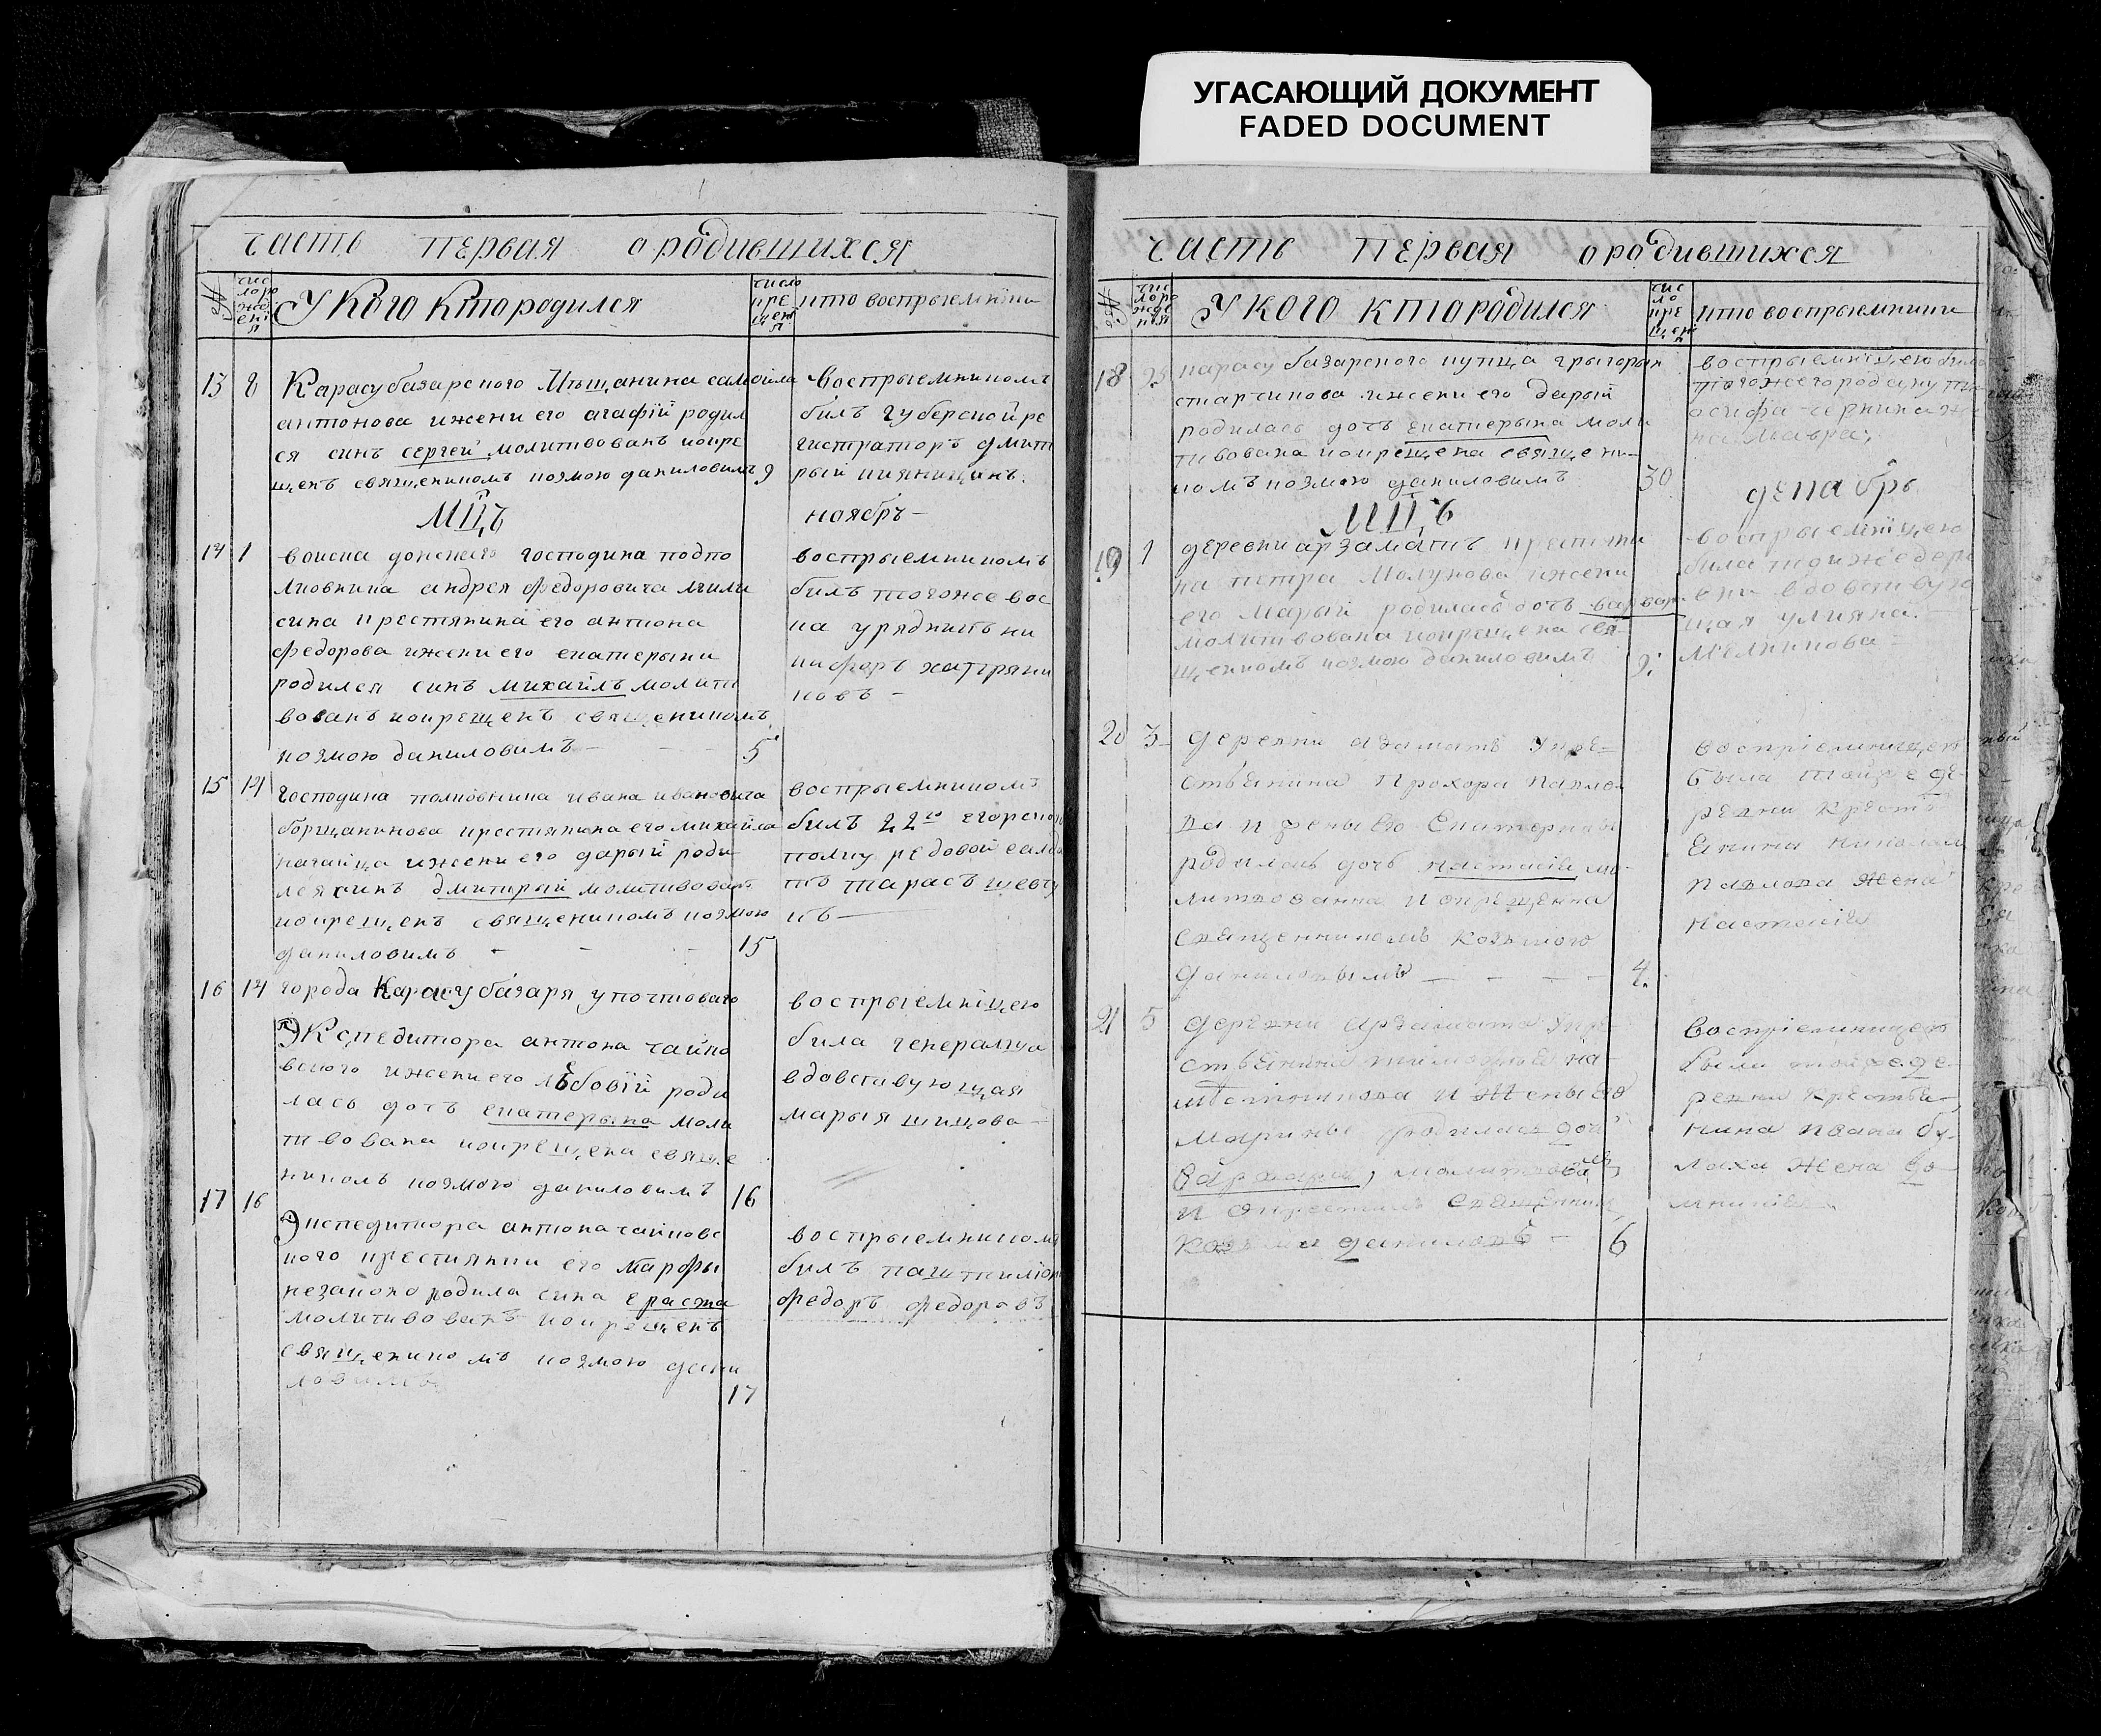 УГАСАЮЩИЙ ДОКУМЕНТ
FADED DOCUMENT
часть первая о родившихся
№
чис
ло ро
жд
ені
я
У Кого Кто родился
число
кре
щен
я
кто воспрыемніки
13 8 Карасубазарского Мѣщанина самойла
антонова ижени его агафій родил
ся синъ сергей молитвованъ икре
щенъ священикомъ козмою даниловимъ 9
воспрыемникомъ
билъ губерской ре
гистраторъ дмит
рый
МЦЪ
ноябръ
14 1 воиска донскаго господина подпо
лковника андрея федоровича
сина крестянина его антона
федорова ижени его екатерыни
родился синъ михайлъ молит
вованъ икрещенъ священикомъ
козмою даниловимъ 5
воспрыемникомъ
билъ тогоже вос
ка урядникъ ни
кифоръ
ковъ
15 14 господина полковника ивана ивановича
борщанинова крестянина его михайла
нагайца ижени его дарый роди
лся синъ дмитрый молитвованъ
икрещенъ священикомъ козмою
даниловимъ 15
воспрыемникомъ
билъ 22го егорско
полку редовой сал
тарасъ шевч
16 14 города Карасубазаря упочтоваго
Экспедитора антона чайко
вского ижени его любовій роди
лась дочъ екатерына моли
твована икрещена свяще
никомъ козмою даниловимъ 16
воспрыемніцею
била генералша
вдовствующая
марыя шицова
17 16 Экспедитора антона чайковс
кого крестянки его марфы
незаконо родила сина ераста
молитвованъ икрещенъ
священикомъ козмою дани
ловимъ 17
воспрыемникомъ
билъ
федоръ федоровъ
часть первая о родившихся
№
чис
ло ро
жде
ния
У кого кто родился
чис
ло
кре
щені
я
кто воспрыемники
18 карасубазарского купца грыгорыя
старчикова ижени его дарый
родилась дочъ екатерына моли
твована икрещена свяще ни
комъ козмою даниловимъ 30
воспрыемніцею била
тогожегорода купц
осифа
на Мавра
МЦЪ
декабрь
19 1 деревни арзаматъ крестяни
на петра Молунова ижени
его Марый родилась дочъ варвар
молитвована икрещена свя
щеникомъ козмою даниловимъ 2
воспрыемніцею
била тоиже дере
вни вдовствую
щая улияна
Мелникова
20 3 деревни азаматъ Укре
стьянина Прохора Павло
ва и жены его Екатерины
родилась дочь настасія мо
литвованна и окрещенна
священникомъ Козьмою
Даниловымъ 4
воспріемницею
была тойже де
ревни Крестья
янина Николая
Павлова жена
Настасія
21 5 деревни Арзамата Укре
стьянина тимофея на
и Жены его
Марины родилась дочь
Варвара, молитвовалъ
и окрестилъ Священникъ
Козьма Даниловъ 6
Воспріемницею
были тойже де
ревни крестья
нина Ивана бу
лаха Жена До
мникія